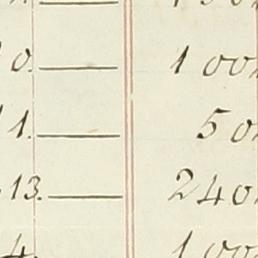 0. 100
1. 50
13. 240
4. 100